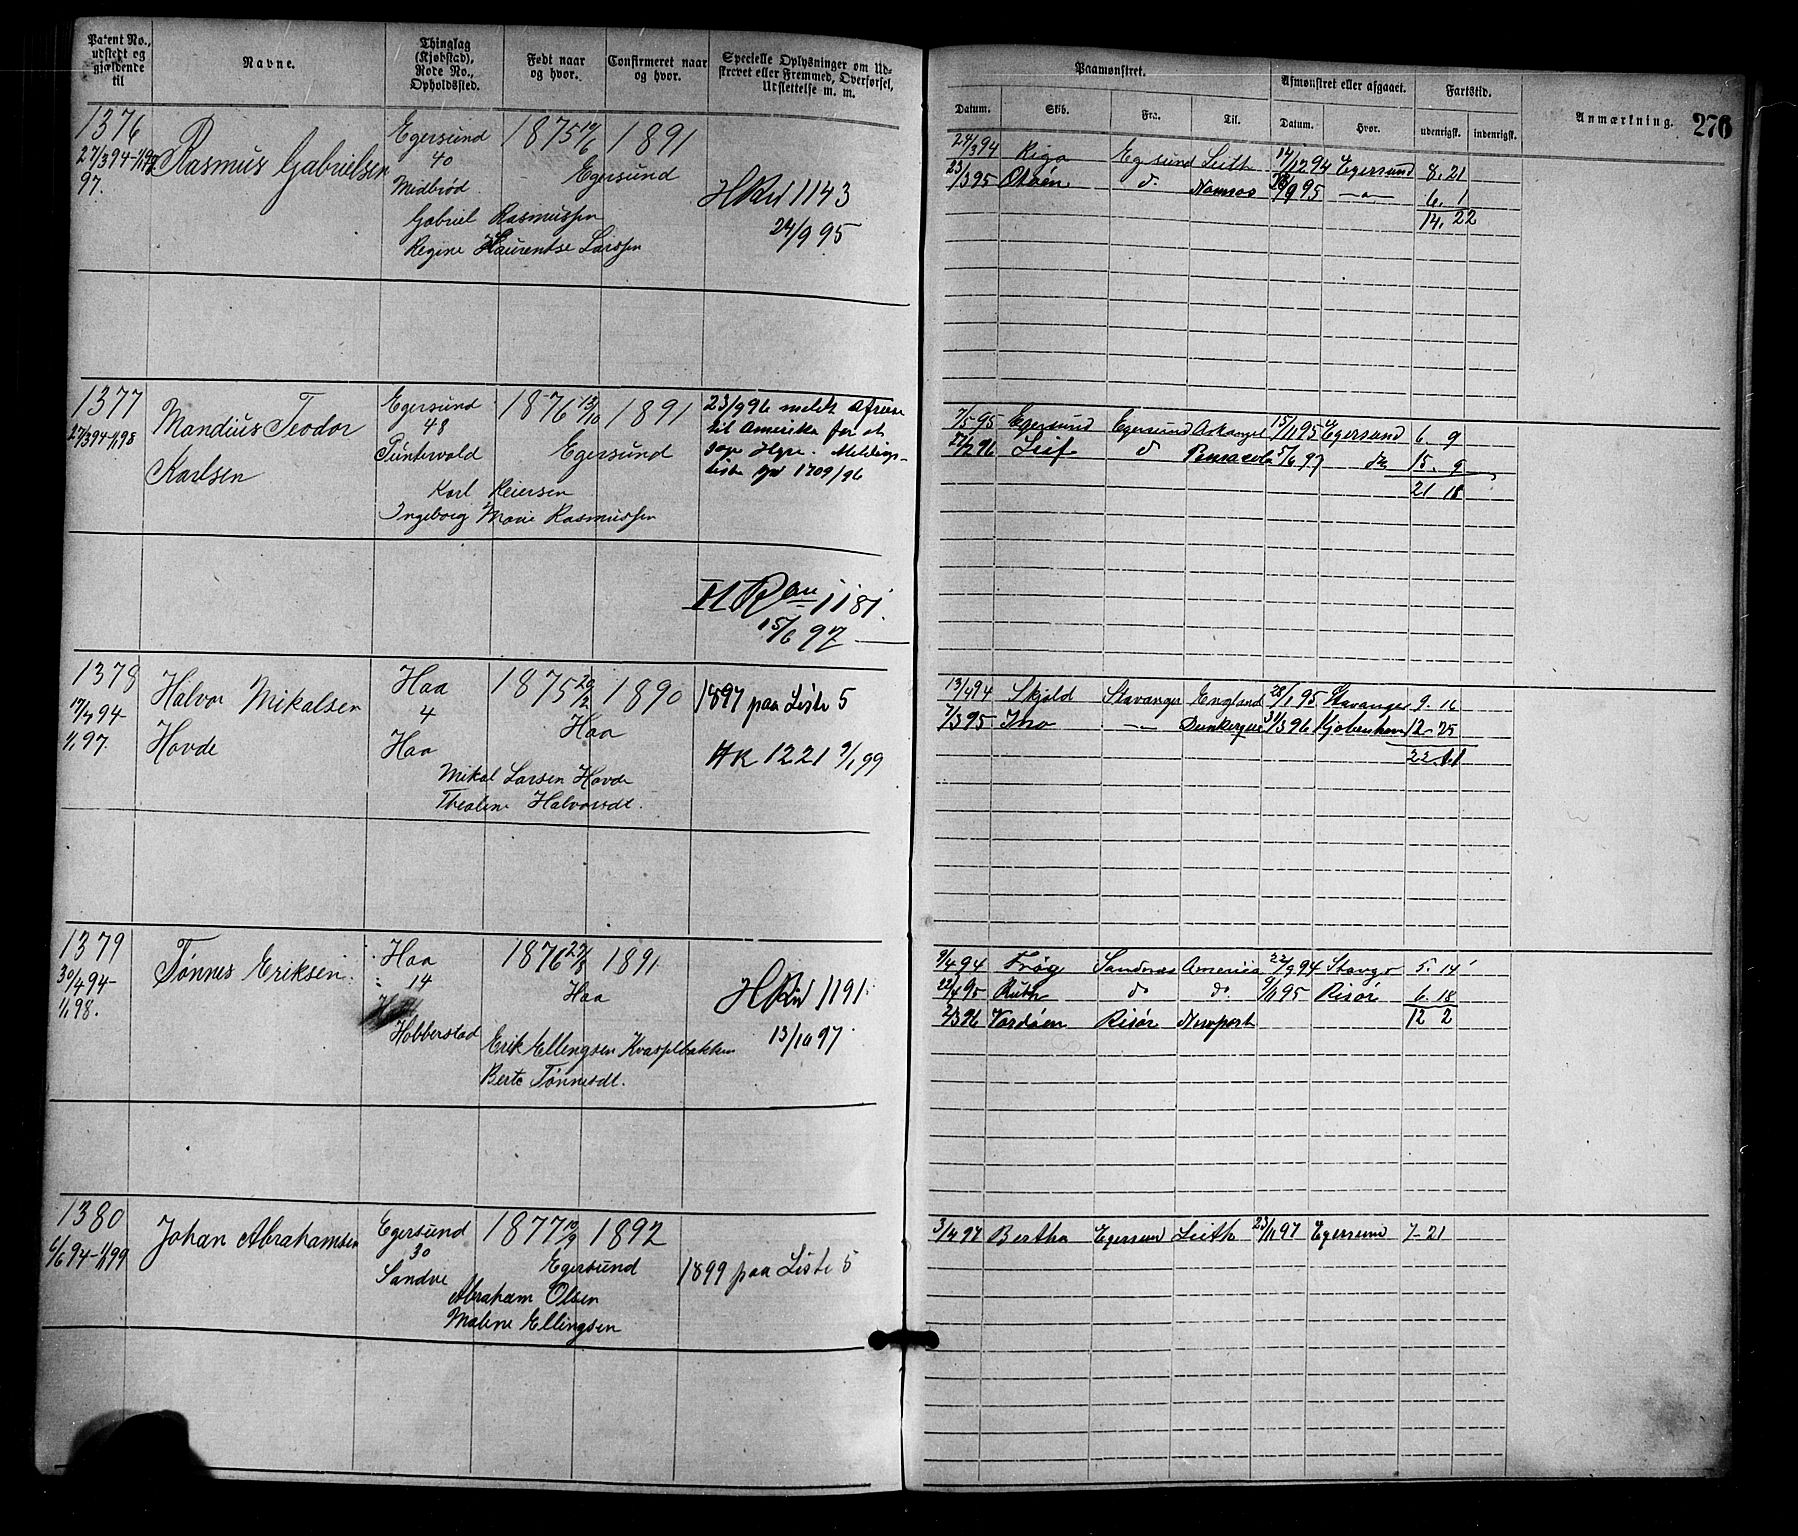 Patent No., udstedt og gjældende til
Navne.
Thinglag (Kjøbstad), Rode No., Opholdssted.
Født naar og hvor.
Confirmeret naar og hvor.
Specielle Oplysninger om Udskrevet eller Fremmed, Overførsel, Udslettelse m. m.
Paamønstret.
Afmønstret eller afgaaet.
Fartstid.
Anmærkning.
276
Datum.
Skib.
Fra.
Til.
Datum.
Hvor.
udenrigsk.
indenrigsk.
1376
97.
Rasmus Gabrielsen
Egersund
40
Midbrød
1875
1891
Egersund
Gabriel Rasmussen
Regine Laurentse Larssen
1143
24/9 95
24/3 94 Riga Egersund Leith 94 Egersund 8. 21
d. 95 6. 1
14. 22
1377
27/3 94-1/1 98
Mandius Teodor
Karlsen
Egersund
48
1876 13/10 1891
Egersund
Karl Reiersen
Ingeborg Marie Rasmussen
23/9 96 meldt Afreise
til Amerika for at
1709/96
1181
15/6 97
7/5 95 Egersund Egersund Arkangel 15/11 95 Egersund 6. 9
Leif d 5/6 97 do 15. 9
21 18
1378
17/4 94
1/1 97.
Halvor Mikalsen
Hovde
Haa
4
Haa
1875 20/2 1890
Haa
Mikal Larsen Hovde
Theoline Halvorsdt.
1897 paa Liste 5
HK 1221 9/1 99
13/4 94 Skjold Stavanger England 28/1 95 Stavanger 9. 16
7/3 95 Ino Dunkerque 96 Kjøbenhavn 12. 25
1379
30/4 94-
1/1 98.
Tønnes Eriksen
Haa
14
Hobberstad
1876 1891
Haa
Erik Ellingsen
Berte Tønnesdt.
1191
13/10 97
9/4 94 America 22/9 94 5. 14
22/4 95 Ruth do do. 9/11 95 Risør 6. 18
2/3 96 Vardøen Risør Newport 12 2
1380
6/6 94-1/1 99
Johan Abrahamsen
Egersund
30
Sandve
1877 1892
Egersund
Abraham Olsen
Malene Ellingsen
1899 paa Liste 5
3/4 97 Bertha Egersund Leith 23/11 97 Egersund 7-21